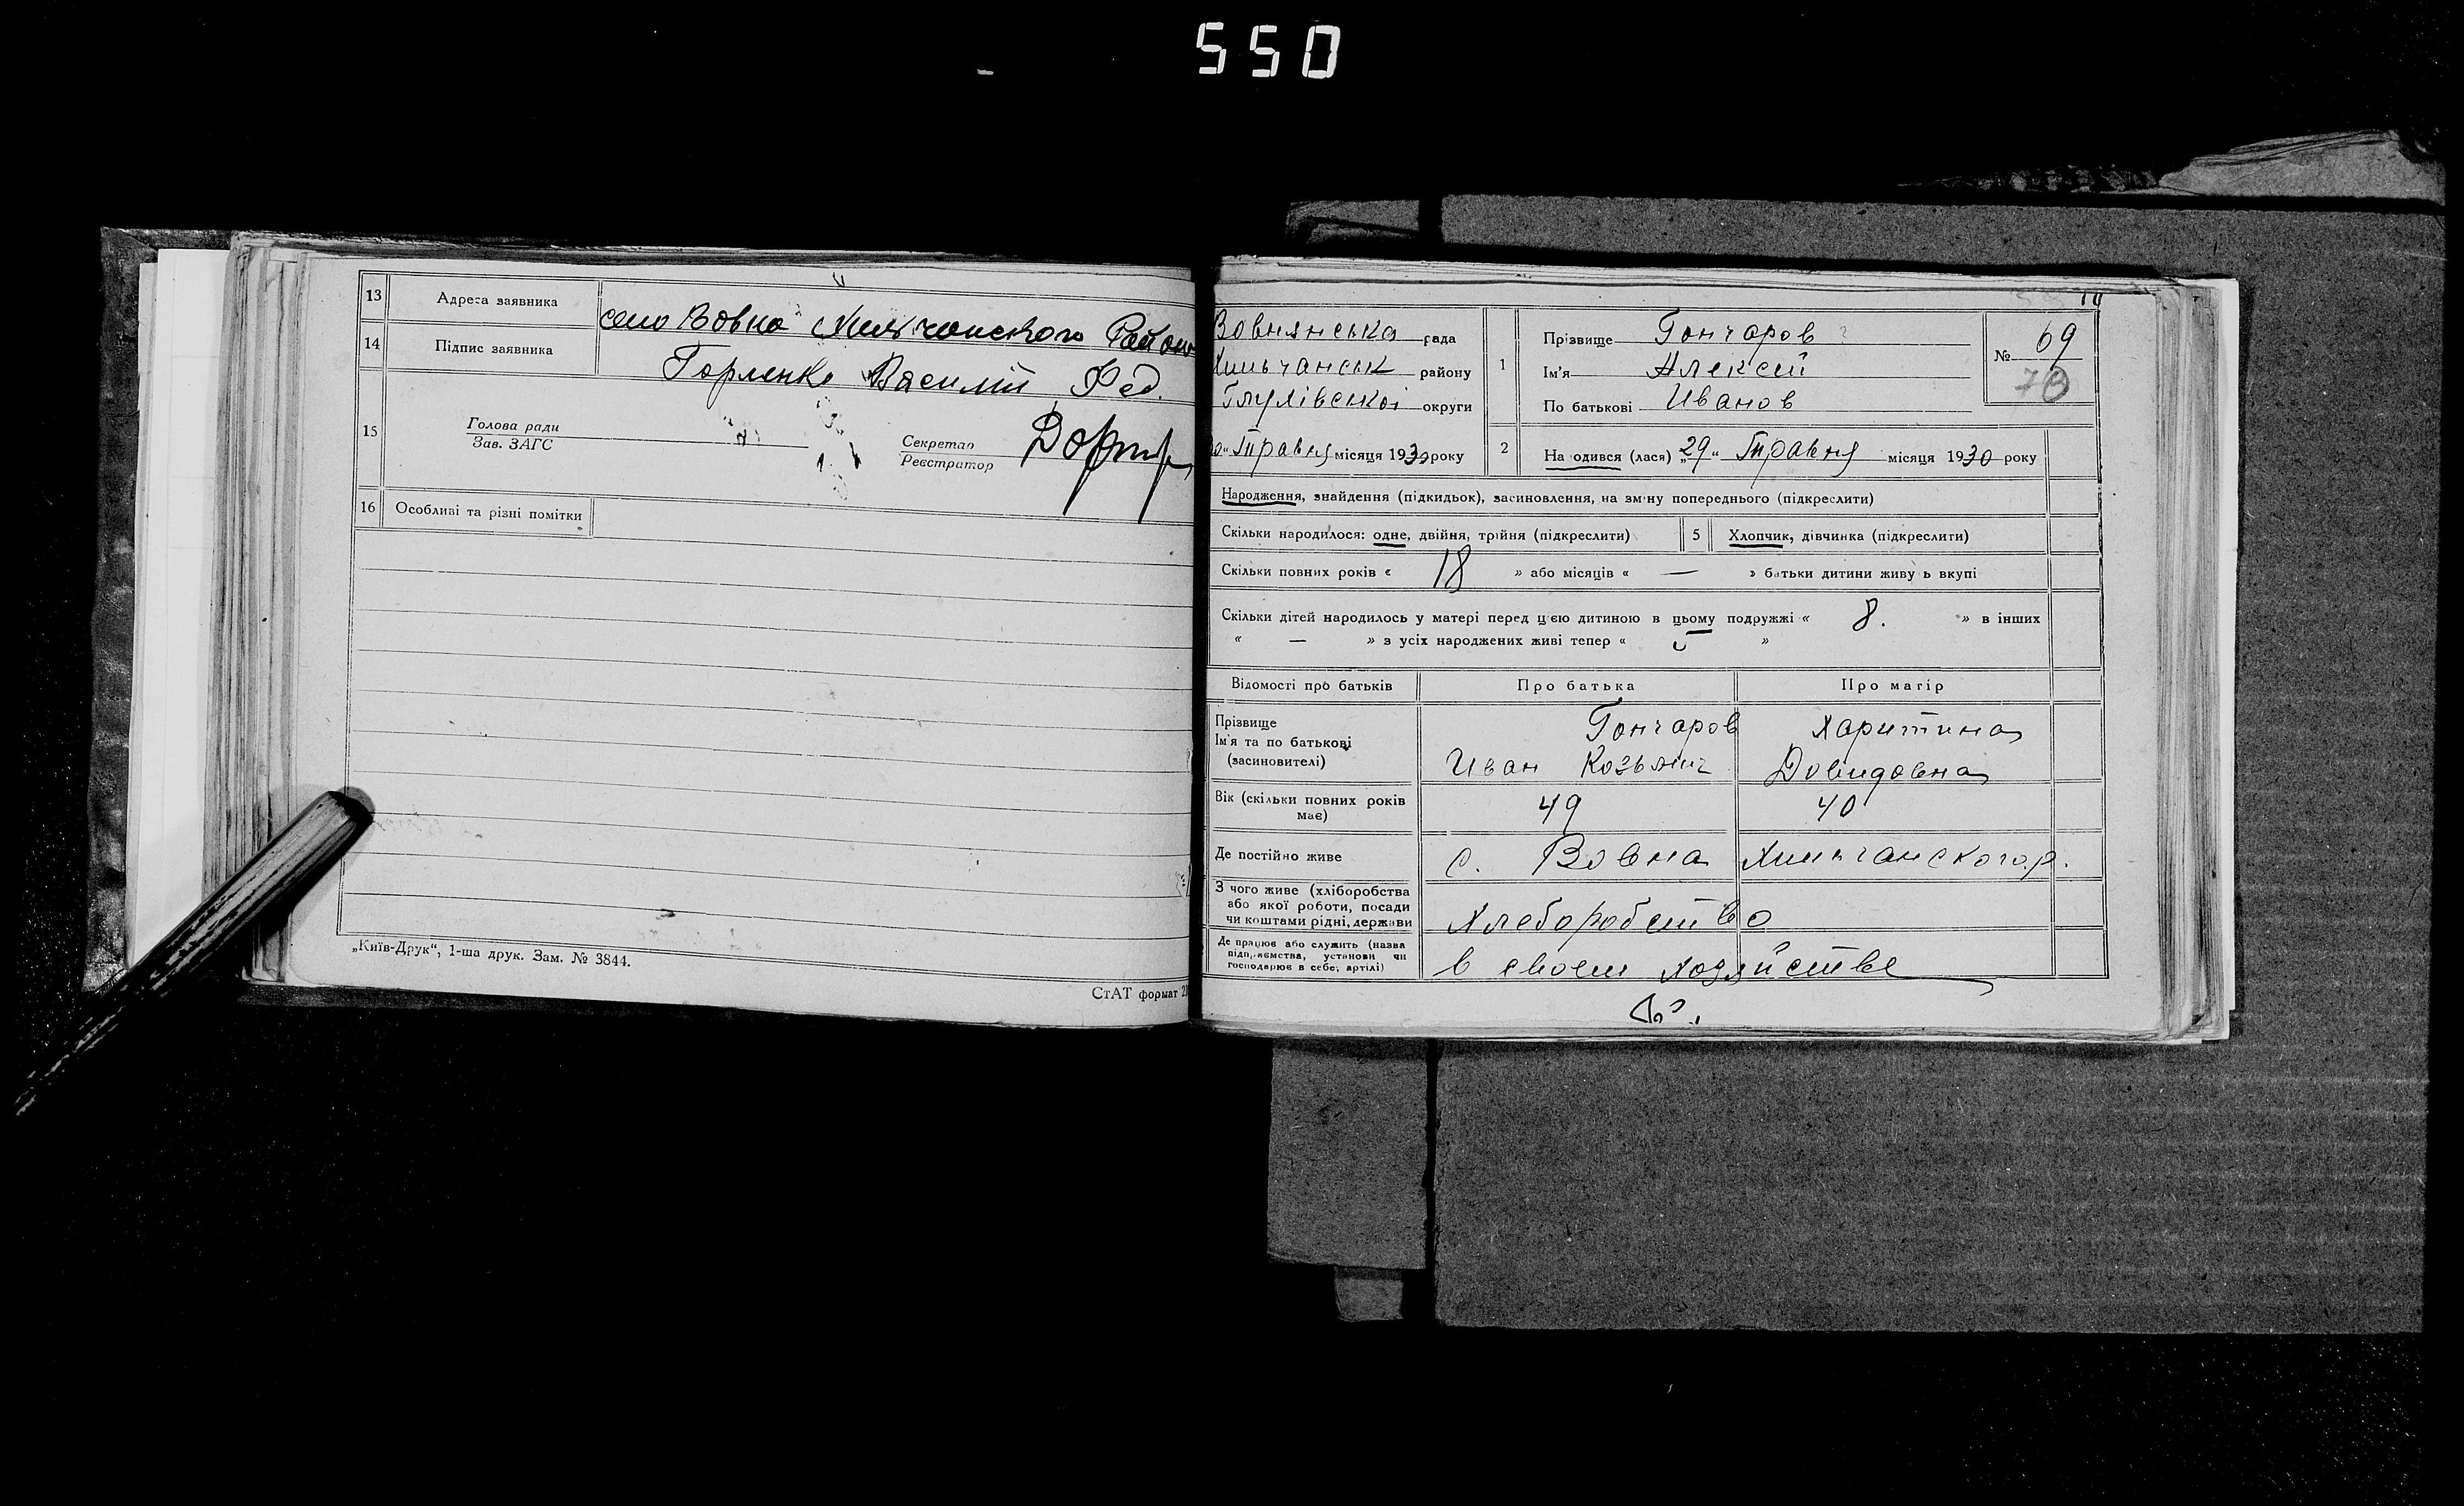 550
13 Адреса заявника село Вовна Хильчанского Район
14 Підпис заявника Горленко Василий Фед.
15 Голова ради
Зав. ЗАГС
Секретар
Реєстратор
16 Особливі та різні помітки
„Київ-Друк“, 1-ша друк. Зам. № 3844.
СтАТ формат
Вовнянська рада
Хильчанськ району
Глухівської округи
30 „ Травня місяця 1930 року
1 Прізвище Гончаров
Ім'я Алексей
По батькові Иванов
№ 69
70
2 На одився (лася) „29“ Травня місяця 1930 року
Народження, знайдення (підкидьок), засиновлення, на зміну попереднього (підкреслити)
Скільки народилося: одне, двійня, трійня (підкреслити) 5 Хлопчик, дівчинка (підкреслити)
Скільки повних років « 18 » або місяців « — » батьки дитини живу ь вкупі
Скільки дітей народилось у матері перед цією дитиною в цьому подружжі « 8. » в інших
« — » з усіх народжених живі тепер « »
Відомості про батьків Про батька Про матір
Прізвище
Ім'я та по батькові
(засиновителі)
Гончаров
Иван Козьмич
Харитина
Довидовна
Вік (скільки повних років
має)
49 40
Де постійно живе с. Вовна Хильчанского р.
З чого живе (хліборобства
або якої роботи, посади
чи коштами рідні, держави
Хлеборобство
Де працює або служить (назва
підприємства, установи чи
господарює в себе, артілі)
в своем хозяйстве